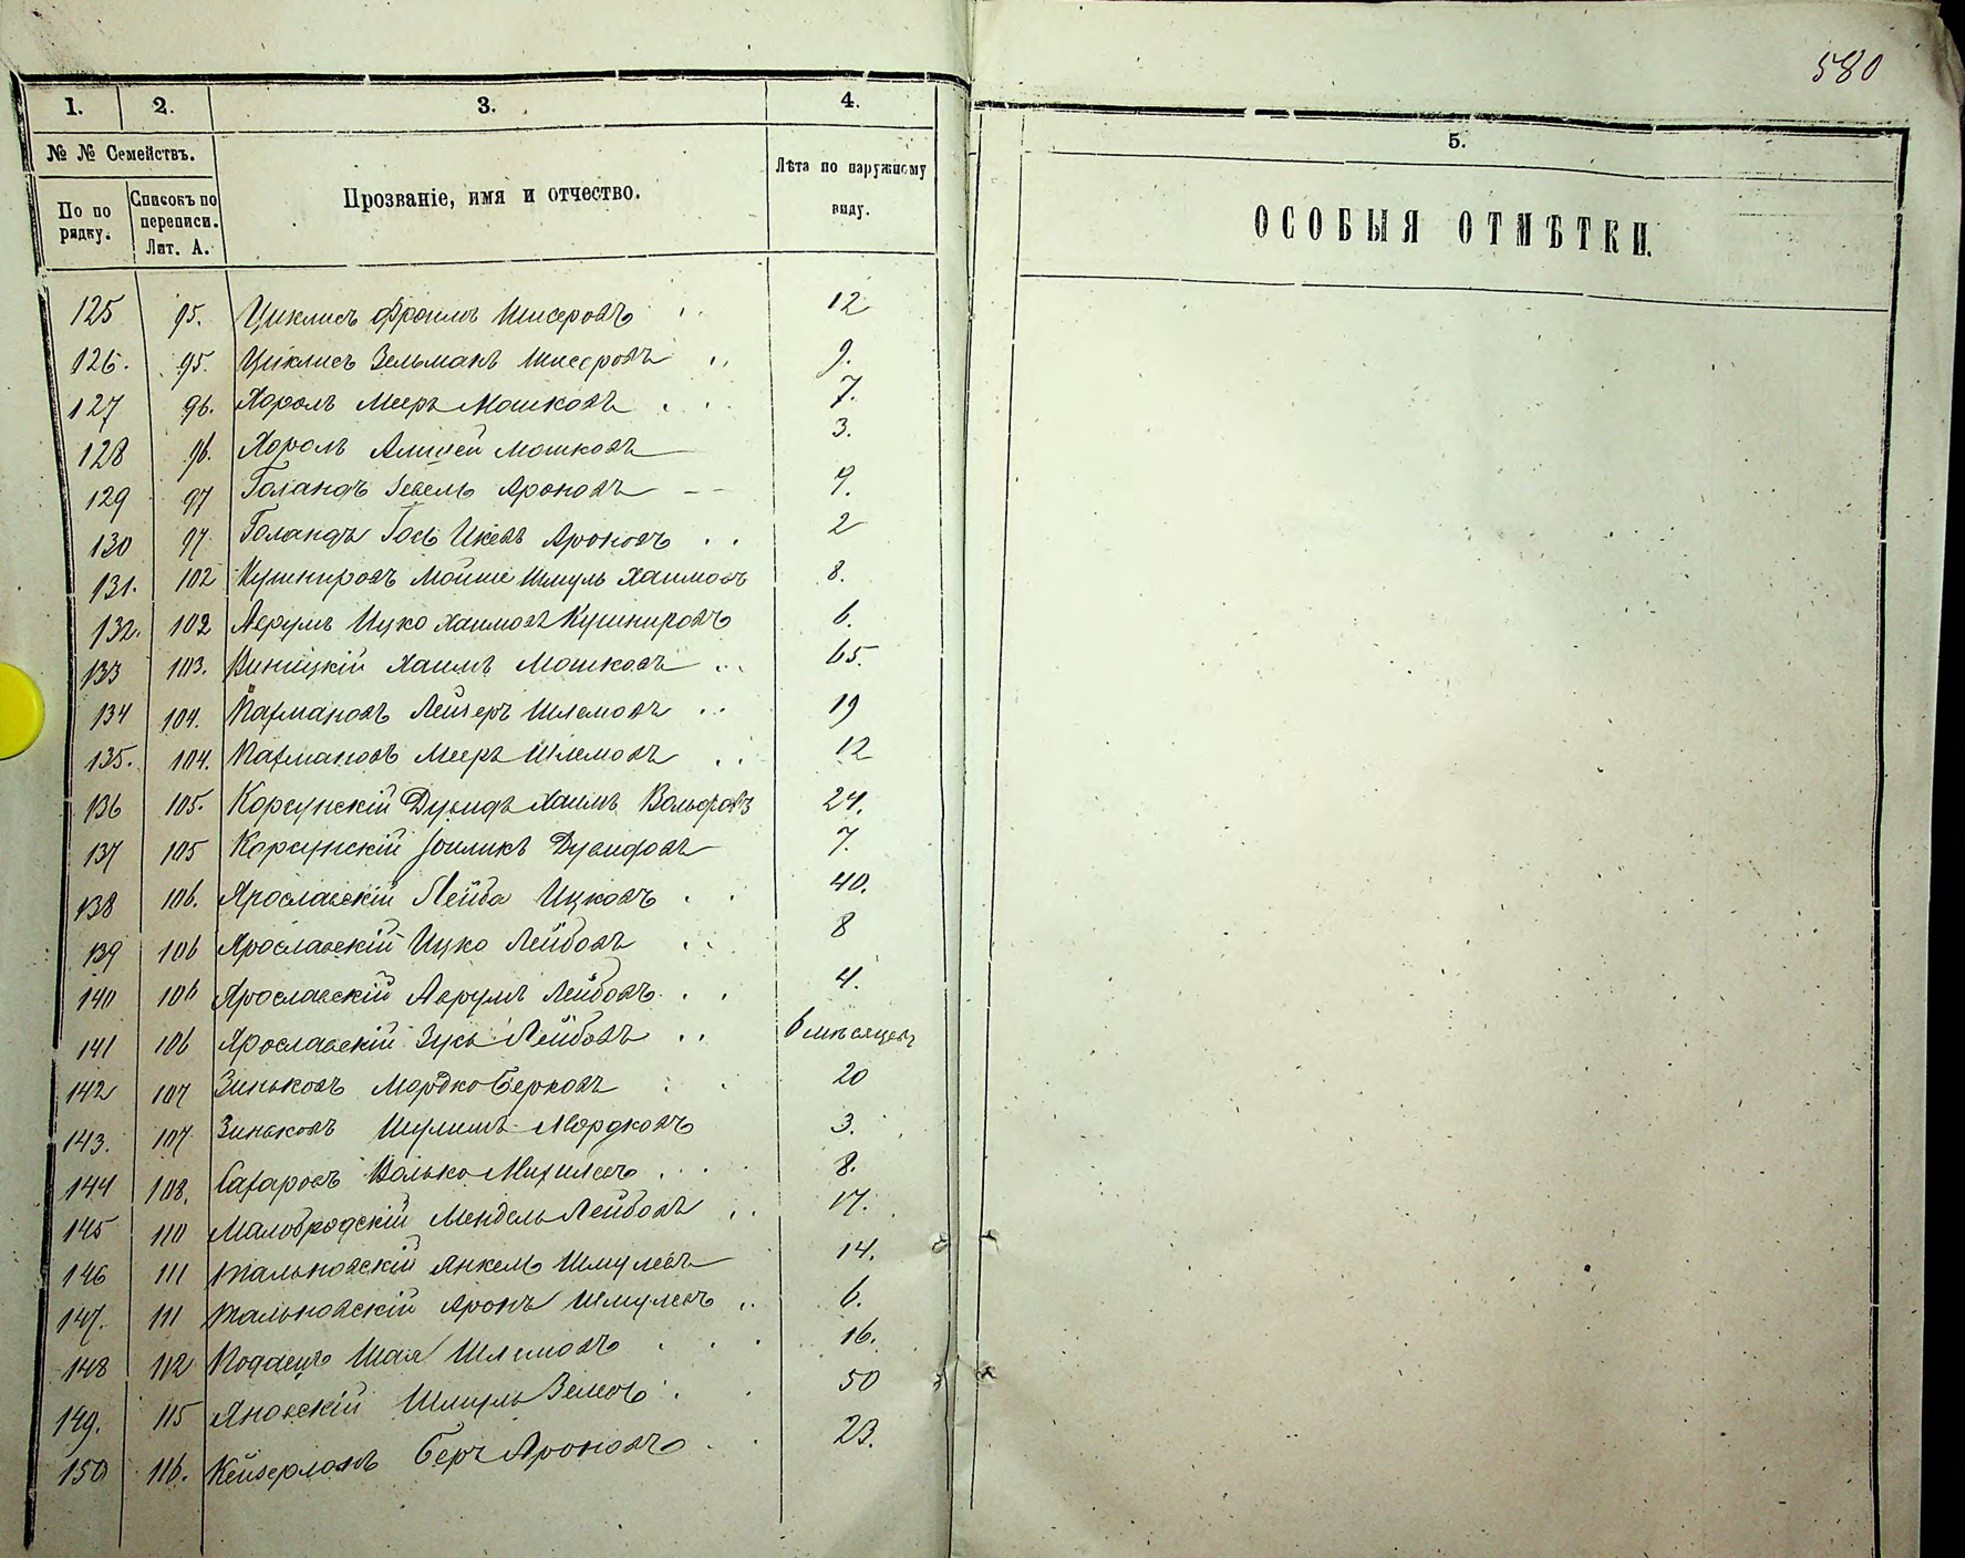 580
1. 2. 3. 4. 5.
№ № Семействъ.
По по рядку. Списокъ по переписи. Лит. А. Прозваніе, имя и отчество. Лѣта по наружному виду. ОСОБЫЯ ОТМѢТКИ.
125 95. Циклисъ Фроимъ Шисеровъ 12
126. 95. Циклисъ Зельманъ Шисеровъ 9.
127 96. Хоролъ Мееръ Мошковъ 7.
128 96. Хоролъ Мошковъ 3.
129 97 Голандъ Гевель Ароновъ 9.
130 97 Голандъ Гось Ароновъ 2
131. 102 Кушнировъ Мойше Шмуль Хаимовъ 8.
132. 102 Аврумъ Ицко Хаимовъ Кушнировъ 6.
133 103. Виницкій Хаимъ Мошковъ 65.
134 104. Лейзеръ Шлемовъ 19
135. 104. Мееръ Шлемовъ 12
136 105. Корсунскій Дувидъ Хаимъ Вольфовъ 24.
137 105 Корсунскій Іоиликъ Дувидовъ 7.
138 106. Ярославскій Лейба Ицковъ 40.
139 106 Ярославскій Ицко Лейбовъ 8
140 106 Ярославскій Аврумъ Лейбовъ 4.
141 106 Ярославскій Зусь Лейбовъ 6 мѣсяцевъ
142 107 Зиньковъ Мордко Берковъ 20
143. 107 Зиньковъ Шулимъ Мордковъ 3.
144 108. Сахаровъ Волько Михилевъ 8.
145 110 Малобродскій Мендель Лейбовъ 17.
146 111 Тальновскій Янкель Шмулевъ 14.
147. 111 Тальновскій Аронъ Шмулевъ 6.
148 112 Шая Шлемовъ 16.
149. 115 Яновскій Шмуль 50
150 116. Беръ Ароновъ 23.